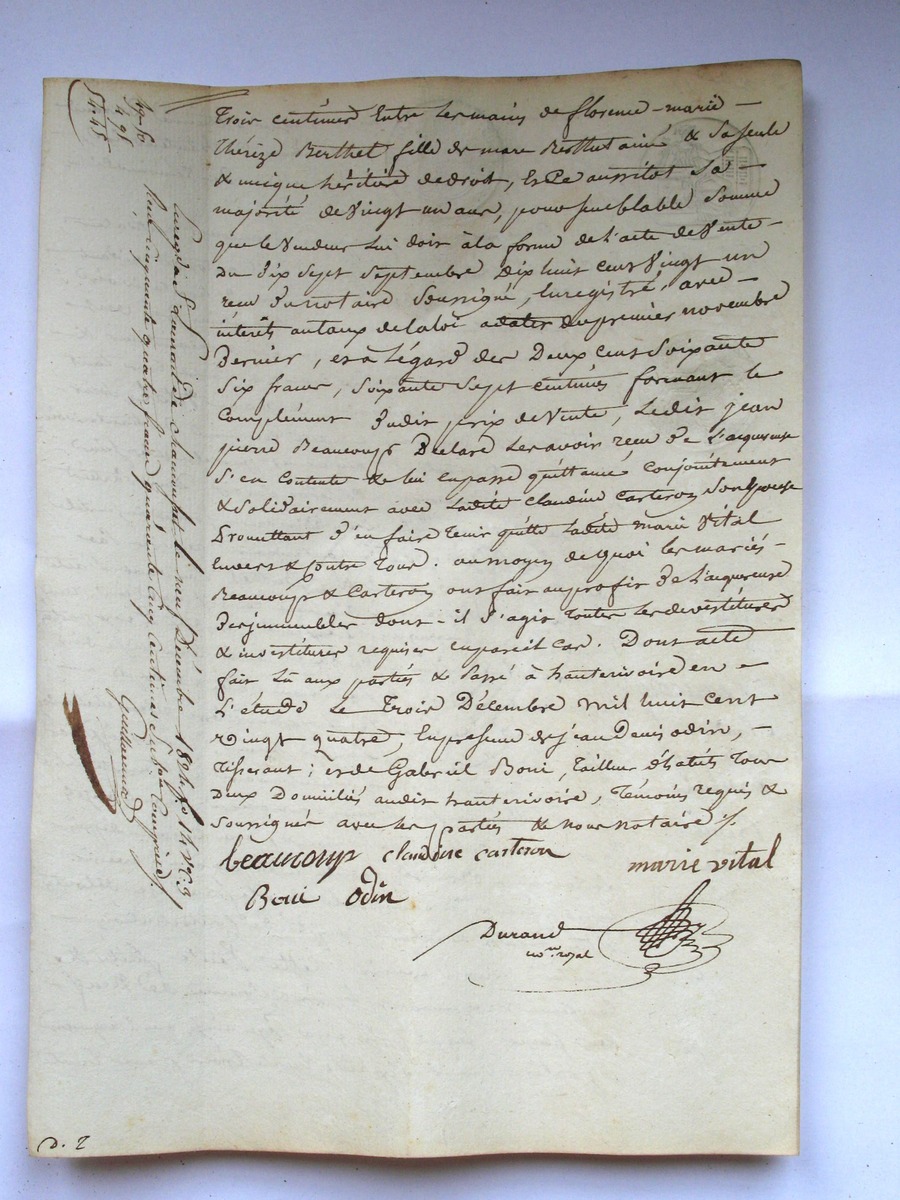 Trois centimes Entre les mains de florence-marie-
Thérèze Berthet fille de marc Berthet ainé & sa seule
& unique héritière de droit, Et Ce aussitot sa
majorité de Vingt un ans, pour semblable somme
que le Vendeur lui doit à la forme de l'acte de Vente-
du Dix Sept Septembre Dix huit cent Vingt un
recu Du notaire Soussigné, Enregistré, avec-
intérêts au taux de la loi a dater du premier novembre
Dernier, et à l'égard des Deux cent Soixante
Six francs, Soixante Sept centimes formant le
Complément Dudit prix de Vente, Ledit jean
pierre Beaucoup Déclare les avoir recu De L'acquereuse
S'en Contente & lui en passe quittance Conjointement
& Solidairement avec Ladite Claudine Carteron Son Epouse
Promettant D'en faire tenir quitte Ladite marie Vital
Envers & Contre Tous. au moyen de quoi les mariés-
Beaucoup & Carteron ont fait au profit De L'acquereuse
Des immeubles dont-il S'agit toutes les devestitures
& investitures requises en pareil cas. Dont acte
fait Lu aux parties & Passé à hauterivoire en-
L'étude Le Trois Décembre mil huit cent
Vingt quatre, En presence de jean Denis odin,-
Tisserant; et de Gabriel Boui, Tailleur d'habits Tous
Deux Domiciliés audit hauterivoire, Témoins requis &
Soussignés avec les parties & nous notaire ./.
beaucoup claudine carteron marie vital
Boui odin
Durand
no.re royal
Enreg. à S.t Laurent de chamousset le neuf Décembre 1824 f.o 14 v.o C.3
Recu cinquante quatre francs quarante cinq centimes subvon comprise ./.
Guillermard
49. 50
4. 95
54. 45
D. 2